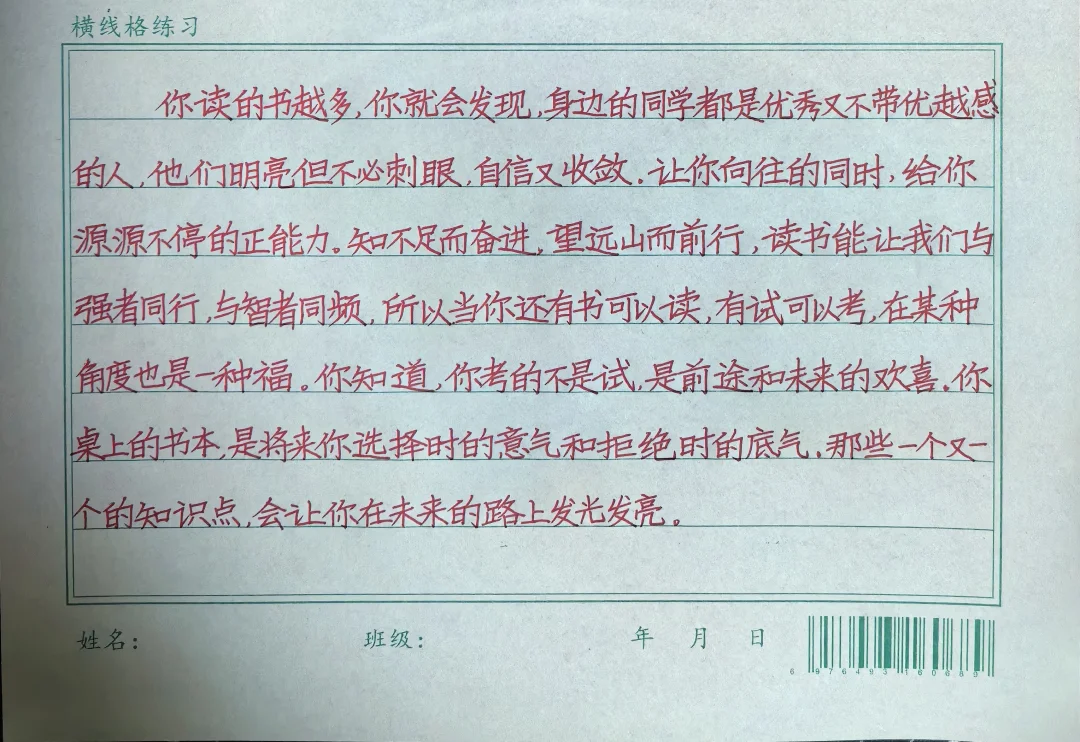 横线格练习
你读的书越多,你就会发现,身边的同学都是优秀又不带优越感
的人,他们明亮但不必刺眼,自信又收敛.让你向往的同时,给你
源源不停的正能力。知不足而奋进,望远山而前行,读书能让我们与
强者同行,与智者同频,所以当你还有书可以读,有试可以考,在某种
角度也是一种福。你知道,你考的不是试,是前途和未来的欢喜.你
桌上的书本,是将来你选择时的意气和拒绝时的底气.那些一个又一
个的知识点,会让你在未来的路上发光发亮。
姓名: 班级: 年 月 日
6 976493 160689